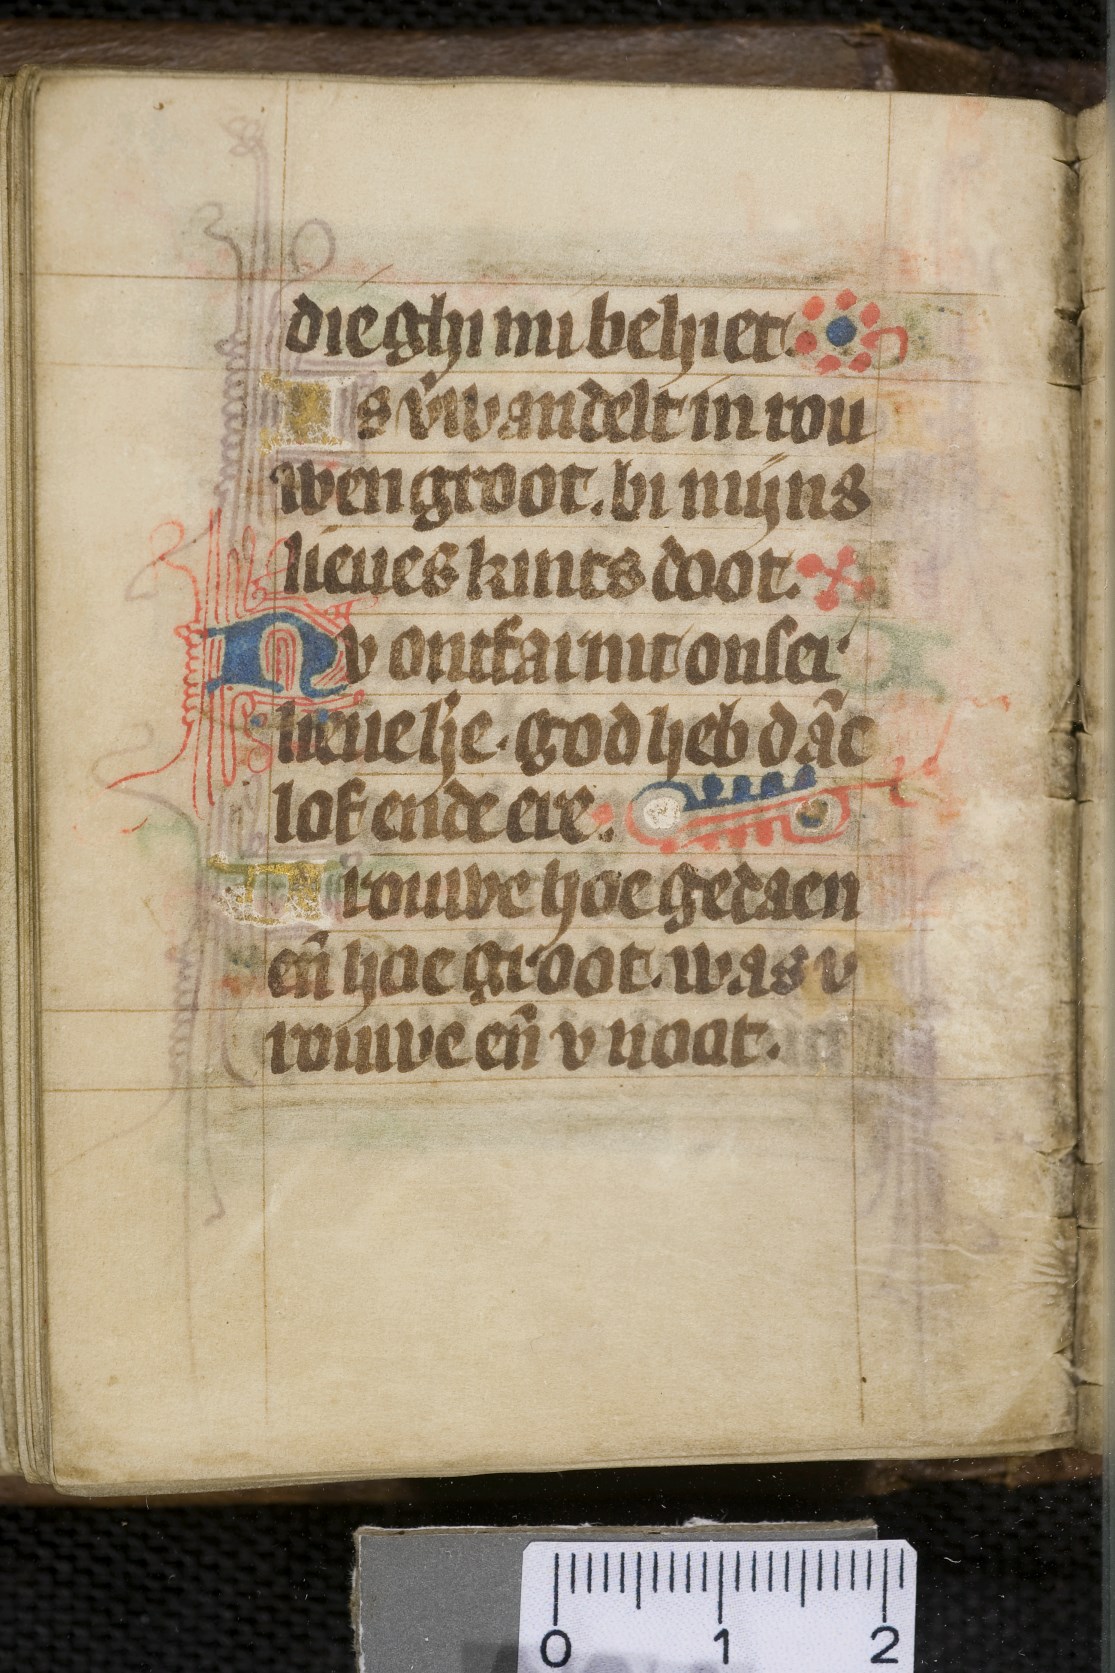 die ghi mi behiet.
Is v̾wandelt in rou
wen groot. bi mijns
lieues kints doot.
Nv ontfarmt onser
lieue h̾e. god heb dãc
lof ende ere.
Vrouwe hoe gedaen
en̄ hoe groot. was v
rouwe en̄ v noot.
0 1 2